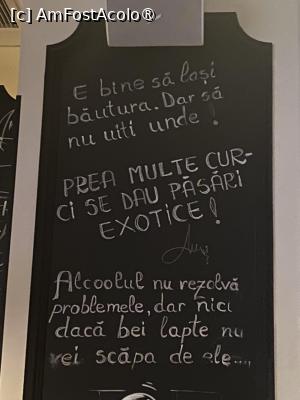 [c] AmFostAcolo®
E bine să lași
băutura. Dar să
nu uiti unde!
PREA MULTE CUR-
CI SE DAU PĂSĂRI
EXOTICE!
Alcoolul nu rezolvă
problemele, dar nici
dacă bei lapte nu
vei scăpa de ele....